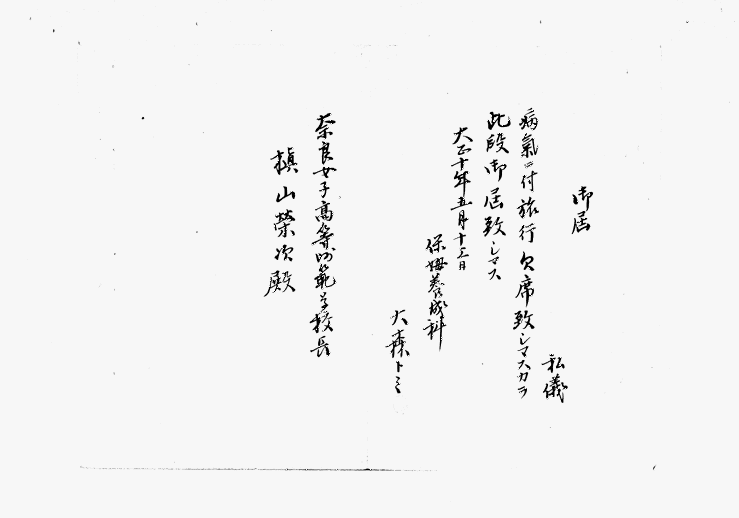 御届
私儀
病氣ニ付旅行欠席致シマスカラ
此段御届致シマス
大正十年五月十三日
保姆養成科
大森トミ
奈良女子高等師範学校長
槙山榮次殿